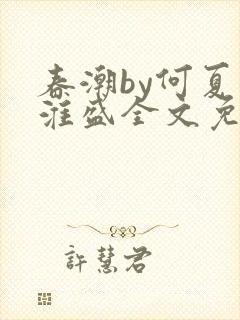 春潮by何夏
淮盛全文免
許慧君